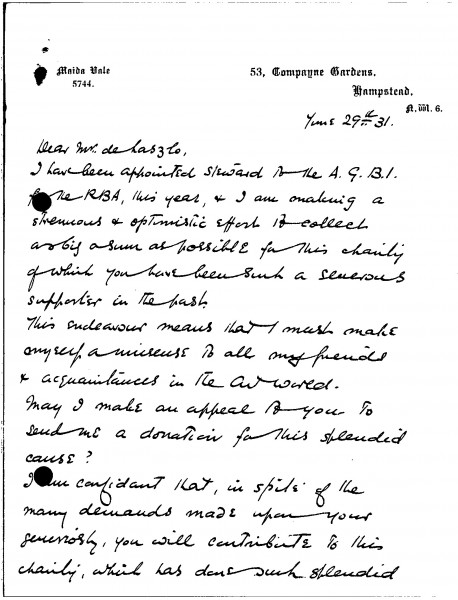 Maida Vale
5744.
53, Compayne Gardens,
Hampstead,
N.W. 6.
June 29th 31.
Dear Mr. de Laszlo,
I have been appointed steward to the A. G. B. I.
for the RBA, this year, & I am making a
strenuous & optimistic effort to collect
as big a sum as possible for this charity
of which you have been such a generous
supporter in the past.
This endeavour means that I must make
myself a nuisance to all my friends
& acquaintances in the Art World.
May I make an appeal to you to
send me a donation for this splendid
cause?
I am confidant that, in spite of the
many demands made upon your
generosity, you will contribute to this
charity, which has done such splendid